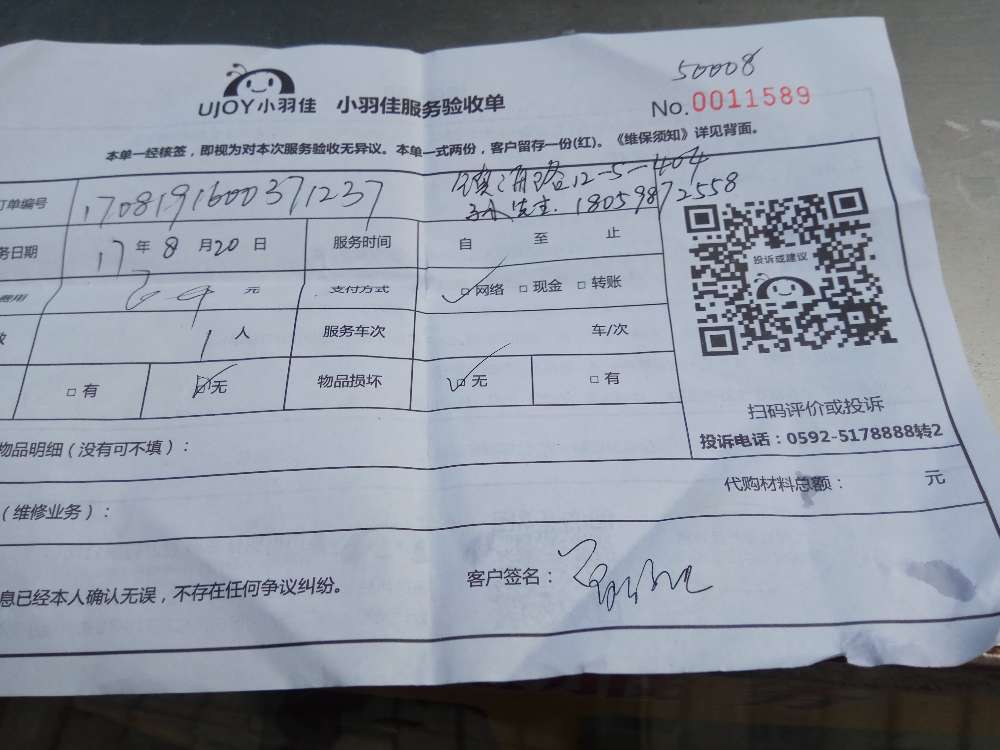 50008
UJOY小羽佳 小羽佳服务验收单 No.0011589
本单一经核签，即视为对本次服务验收无异议。本单一式两份，客户留存一份(红)。《维保须知》详见背面。
订单编号 1708191600371237 镇海路12-5-404
孙先生. 18059872558
务日期 17年8月20日 服务时间 自 至 止
费用 元 支付方式 □网络 □现金 □转账
1人 服务车次 车/次
□有 □无 物品损坏 □无 □有
投诉或建议
扫码评价或投诉
投诉电话：0592-5178888转2
物品明细（没有可不填）：
代购材料总额： 元
（维修业务）：
息已经本人确认无误，不存在任何争议纠纷。 客户签名：